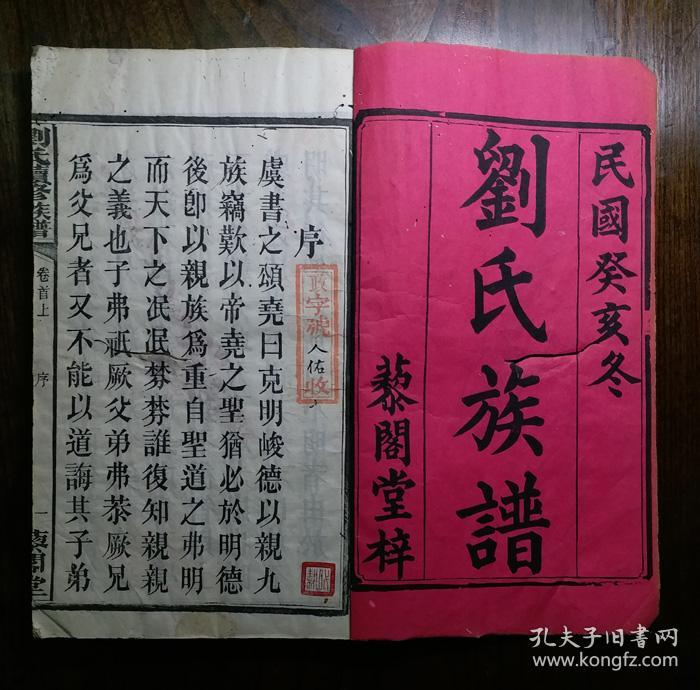 民國癸亥冬
劉氏族譜
藜閣堂梓
序
虞書之頌堯曰克明峻德以親九
族竊歎以帝堯之聖猶必於明德
後卽以親族爲重自聖道之弗明
而天下之泯泯棼棼誰復知親親
之義也子弗祇厥父弟弗恭厥兄
爲父兄者又不能以道誨其子弟
字號
人佑收
劉氏續修族譜
卷首上
序
一
藜閣堂
孔夫子旧书网
www.kongfz.com